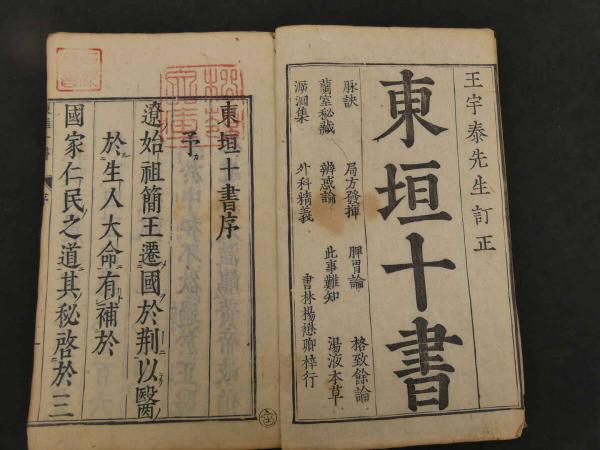 王宇泰先生訂正
東垣十書
脉訣 局方發揮 脾胃論 格致餘論
蘭室秘藏 辨惑論 此事難知 湯液本草
溯洄集 外科精義 書林楊懋卿梓行
東垣十書序
予
遼始祖簡王遷國於荆以醫
於生人大命有補於
國家仁民之道其秘啓於三